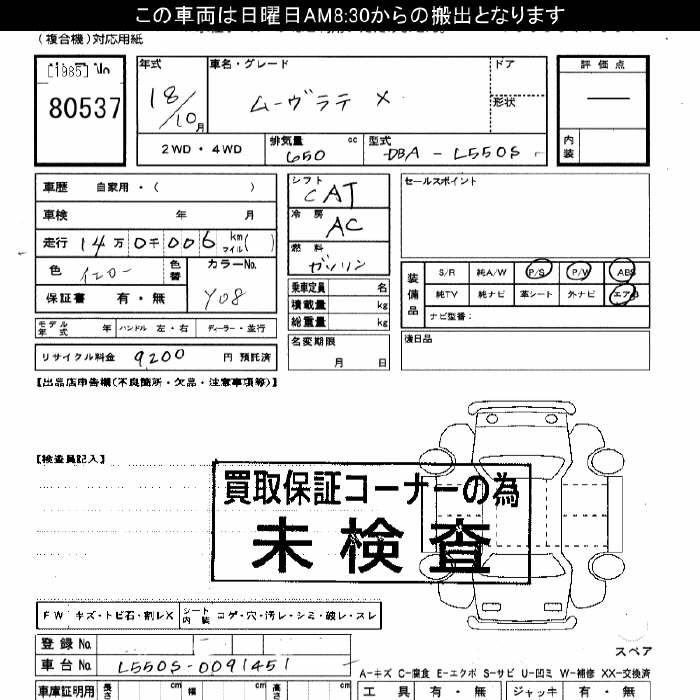 この車両は日曜日AM8:30からの搬出となります
(複合機)対応用紙
[1985] No
80537
年式
18/10月
車名・グレード
ムーヴラテ X
ドア
形状
評価点
内装
2WD・4WD
排気量 650 cc
型式 DBA-L550S
車歴 自家用・( )
車検 年 月
走行 14万0千006 km マイル( )
色 イエロー 色替
カラーNo. Y08
保証書 有・無
モデル年式 年 ハンドル 左・右 ディーラー・並行
リサイクル料金 9200 円 預託済
シフト CAT
冷房 AC
燃料 ガソリン
乗車定員 名
積載量 kg
総重量 kg
名変期限
月 日
セールスポイント
装備品
S/R 純A/W P/S P/W ABS
純TV 純ナビ 革シート 外ナビ エアB
ナビ型番:
後日品
【出品店申告欄(不良箇所・欠品・注意事項等)】
【検査員記入】
買取保証コーナーの為
未検査
FW キズ・トビ石・割レX シート内装 コゲ・穴・汚レ・シミ・破レ・スレ
登録 No.
車台 No. L550S-0091451
スペア
A-キズ C-腐食 E-エクボ S-サビ U-凹ミ W-補修 XX-交換済
車庫証明用 長さ cm 幅 cm 高さ cm
工具 有・無 ジャッキ 有・無